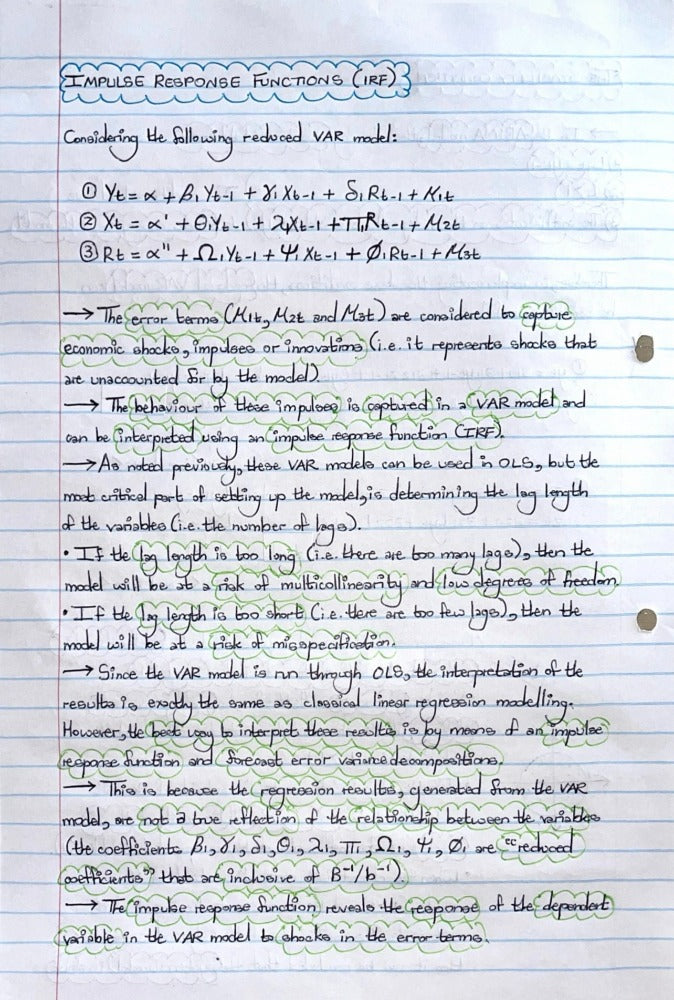 IMPULSE RESPONSE FUNCTIONS (IRF)
Considering the following reduced VAR model:
① Yt = α + β₁Yt-1 + γ₁Xt-1 + δ₁Rt-1 + μ1t
② Xt = α' + θ₁Yt-1 + λ₁Xt-1 + π₁Rt-1 + μ2t
③ Rt = α'' + Ω₁Yt-1 + Ψ₁Xt-1 + Ø₁Rt-1 + μ3t
→ The error terms (μ1t, μ2t and μ3t) are considered to capture
economic shocks, impulses or innovations (i.e. it represents shocks that
are unaccounted for by the model).
→ The behaviour of these impulses is captured in a VAR model and
can be interpreted using an impulse response function (IRF).
→ As noted previously, these VAR models can be used in OLS, but the
most critical part of setting up the model, is determining the lag length
of the variables (i.e. the number of lags).
• If the lag length is too long (i.e. there are too many lags), then the
model will be at a risk of multicollinearity and low degrees of freedom.
• If the lag length is too short (i.e. there are too few lags), then the
model will be at a risk of misspecification.
→ Since the VAR model is run through OLS, the interpretation of the
results is exactly the same as classical linear regression modelling.
However, the best way to interpret these results is by means of an impulse
response function and forecast error variance decompositions.
→ This is because the regression results, generated from the VAR
model, are not a true reflection of the relationship between the variables
(the coefficients β₁, γ₁, δ₁, θ₁, λ₁, π₁, Ω₁, Ψ₁, Ø₁ are "reduced
coefficients" that are inclusive of B⁻¹/b⁻¹).
→ The impulse response function reveals the response of the dependent
variable in the VAR model to shocks in the error terms.